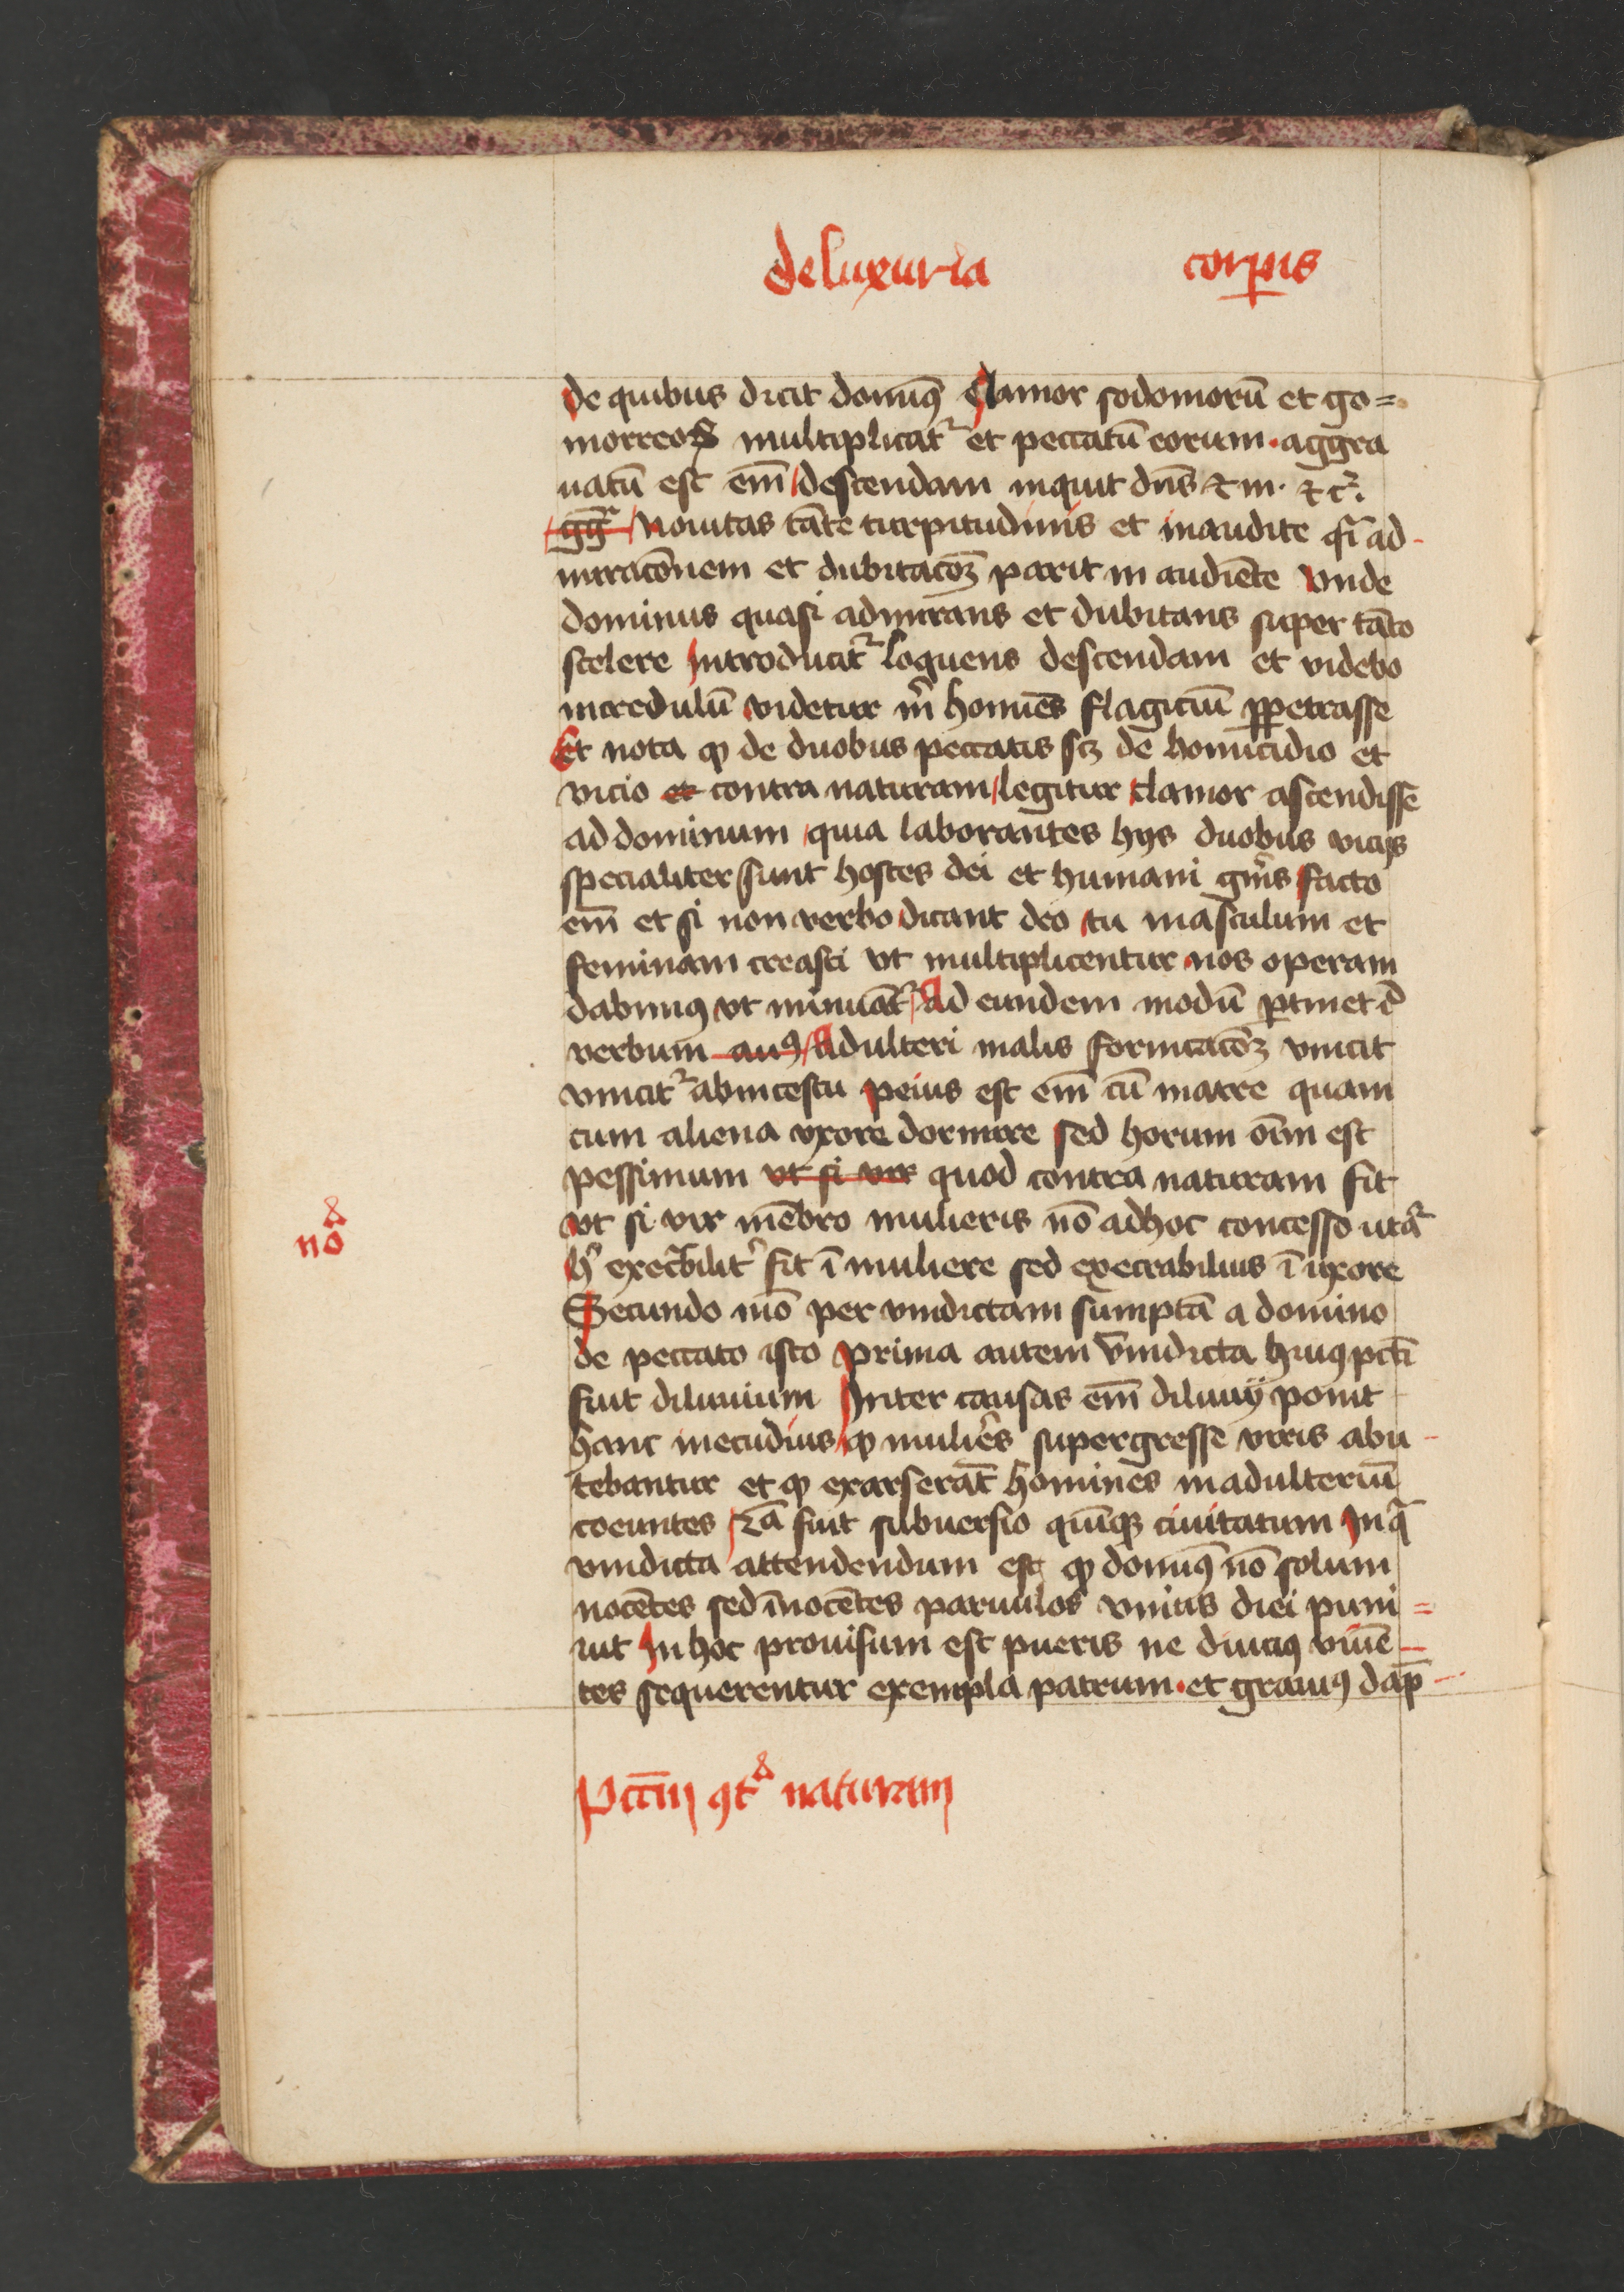 de luxuria corꝑis
de quibus dicit dominꝰ Clamor sodomorū et go=
morreoꝝ multiplicatᷣ et peccatū eorum · aggra
uatū est em̄ descendam inquit dn̄s ⁊ in · ⁊cᷣ.
gg̅ᷣ Nouitas tāte turpitudinis et inaudite qͥ ad-
miracōnem et dubitacōꝫ parit in audiēte Vnde
dominus quasi admirans et dubitans super tāto
scelere Introducitᷣ loquens descendam et videbo
incredulū videtur mͥ homīes flagiciū ꝑpetrasse
Et nota ꝙ de duobus peccatis sꝫ de homicidio et
vicio et contra naturam legitur clamor ascendisse
ad dominum quia laborantes hijs duobus vicijs
specialiter sunt hostes dei et humani gn̄is facto
em̄ et si non verbo dicant deo tu masculum et
feminam creasti vt multiplicentur nos operam
dabimꝰ vt minuātᷣ Ad eundem modū ꝑtinet id̄
verbum auꝰ Adulteri malis fornicacōꝫ vincit
vincitᷣ ab incestu peius est em̄ cū matre quam
cum aliena vxore dormire sed horum oīm est
pessimum vt si vir quod contra naturam fit
vt si vir mēbro mulieris nō ad hoc concesso utaᷣ
noͣ
hͦ exec̄bilitᷣ fit ī muliere sed execrabilius ī uxore
Secundo mō per vindictam sumptā a domino
de peccato isto prima autem vindicta huiꝰ pcti
fuit diluuium Inter causas em̄ diluuij ponit
hanc mecudius ꝙ mulieʳes supergresse viris abu-
tebantur et ꝙ exarserāt homines in adulteriū
coeuntes 2ā fuit subuersio quīqꝫ ciuitatum In qͣ
vindicta attendendum est ꝙ dominꝰ nō solum
nocētes sed īnocētes paruulos vnius diei puni=
uit In hoc prouisum est pueris ne diuciꝰ viuē-
tes sequerentur exempla patrum · et grauiꝰ dap̄-
Pccm̄ ꝯtͣ naturam